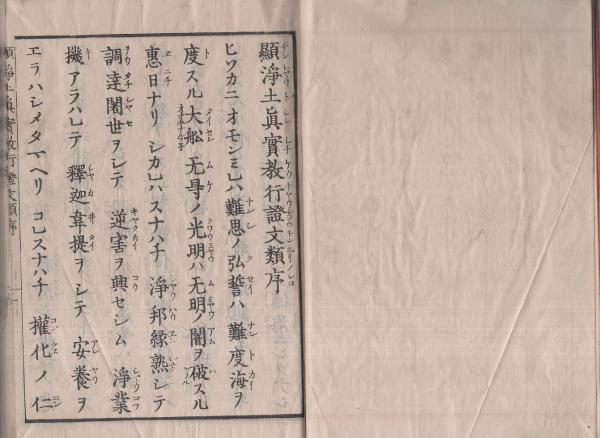 顯淨土眞實教行證文類序
ヒソカニオモンミレハ難思ノ弘誓ハ難度海ヲ
度スル大船无㝵ノ光明ハ无明ノ闇ヲ破スル
惠日ナリシカレハスナハチ淨邦縁熟シテ
調達闍世ヲシテ逆害ヲ興セシム淨業
機アラハレテ釋迦韋提ヲシテ安養ヲ
エラハシメタマヘリコレスナハチ權化ノ仁
顯淨土眞實教行證文類序